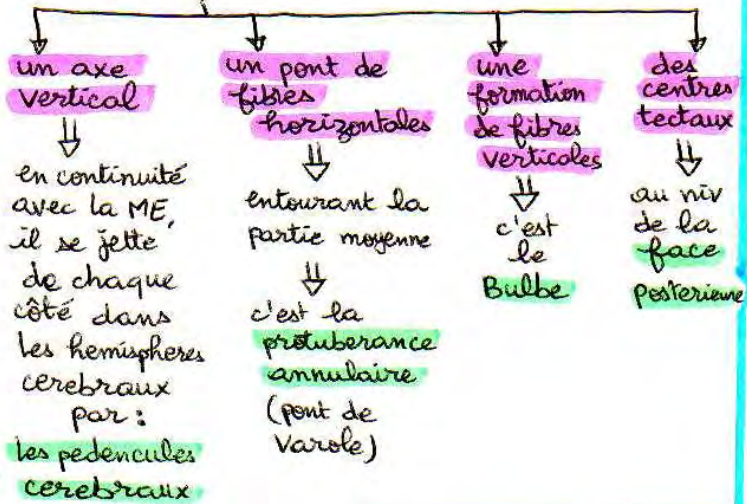 un axe
vertical
⇓
en continuité
avec la ME,
il se jette
de chaque
côté dans
les hemispheres
cerebraux
par :
les pedencules
cerebraux
un pont de
fibres
horizontales
⇓
entourant la
partie moyenne
⇓
c'est la
protuberance
annulaire
(pont de
Varole)
une
formation
de fibres
verticales
⇓
c'est
le
Bulbe
des
centres
tectaux
⇓
au niv
de la
face
posterieure